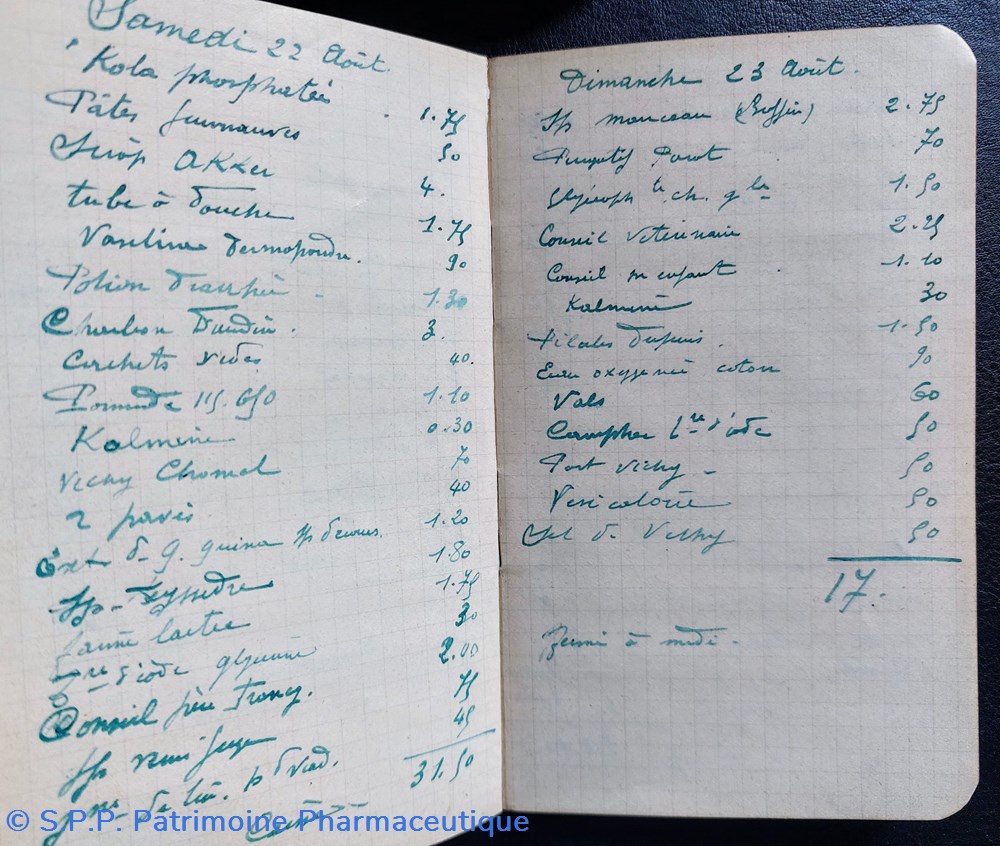 Samedi 22 Août.
Kola phosphatée 1.75
Pâtes 50
Sirop Akker 4.
tube à douche 1.75
Vaseline Dermopoudre. 90
Potion Diarrhée 1.30
Charbon Daudin. 3.
Cachets vides 40.
Pommade 1.10
Kalmine 0.30
Vichy Chomel 70
2 40
Ext de q. quina 1.20
Sp. Teyssedre 1.80
farine lactée 1.75
d'iode glycerine 30
Conseil père Francy. 2.00
Sp 75
de lin. 45
31.50
Dimanche 23 Août.
Sp manceau 2.75
Purgatif 70
Glyceroph te ch. gle 1.50
Conseil vétérinaire 2.25
Conseil enfant 1.10
Kalmine 30
Pilules Dupuis. 1.50
Eau oxygenée coton 90
Vals 60
Camphre tre d'iode 50
Vichy 50
50
Sel de Vichy 50
17.
Fermé à midi.
© S.P.P. Patrimoine Pharmaceutique